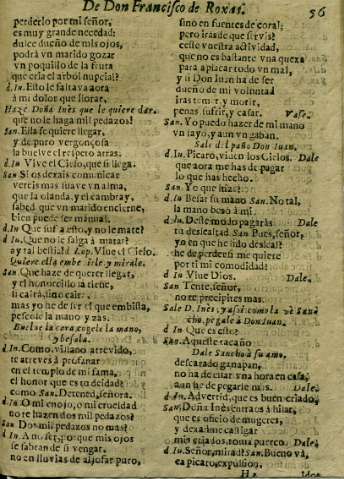 De Don Francisco de Roxas. 56
perderlo por mi señor,
es muy grande necedad:
dulce dueño de mis ojos,
podrà vn marido gozar
vn poquillo de la fruta
que cria el arbol nupcial?
d. In. Esto le faltaua aora
à mi dolor que llorar.
Haze Doña Ines que le quiere dar.
que no le haga mil pedazos!
San. Ella se quiere llegar,
y de puro vergonçosa
la buelue el respeto atras.
d. In. Viue el Cielo, que si llega.
San. Si os dexais comunicar
vereis mas suaue vn alma,
que la olanda, y el cambray,
sabed, que vn marido encierne,
bien puede ser manual.
d. In. Que sufra esto, y no le mate?
d. In. Que no le salga à matar?
ay tal bestia! Lop. Viue el Cielo.
Quiere ella embestirle y mirale.
San. Que haze de querer llegar,
y el honorcillo la tiene,
si cairà, sino cair:
mas yo he de ser el que embista,
pescole la mano, y zas.
Buelue la cara, cogele la mano,
y besala.
d. In. Como, villano atrevido,
te atreves à profanar
en el templo de mi fama,
el honor que es to deidad?
como San. Detened, señora.
d. In. O mi enojo, o mi crueldad
no te hazen dos mil pedazos?
San. Dos mil pedazos no mas?
d. In. A no ser, porque mis ojos
se sabran de si vengar,
no en lluvias de aljofar puro,
sino en fuentes de coral;
pero iras de que servis?
cesse vuestra actividad,
que no es bastante vna quexa
para aplacar todo vn mal,
y si Don Iuan ha de ser
dueño de mi voluntad
iras temer, y morir,
penas sufrir, y casar. Vase.
San. Yo puedo hazer de mi mano
vn sayo, y aun vn gaban.
Sale del paño Don Iuan.
d. Iu. Picaro, viuen los Cielos. Dale
que aora me has de pagar
lo que has hecho.
San. Yo que hize?
d. Iu. Besar su mano San. No tal,
la mano besò à mi.
d. Iu. Deste modo pagaràs Dale
tu deslealtad. San. Pues, señor,
yo en que he sido desleal?
he de perderse me quiere
por ti mi comodidad?
d. Iu Viue Dios. Dale.
San. Tente, señor,
no te precipites mas.
Sale D. Ines, y assi como la vè Sancho, pegale à Don Iuan.
d In Que es esto?
San. Aqueste tacaño
Dale Sancho à su amo,
descarado ganapan,
no ha de entrar vna hora en casa,
aun he de pegarle mas. Dale.
d. In. Advertid, que es buen criado,
San. Doña Ines entraos à hilar,
que es oficio de mugeres,
y dexadme castigar
mis criados, toma puerco. Dale.
d. Iu. Señor, mirad! San. Bueno và,
ea picaro, expulsion,
H 2